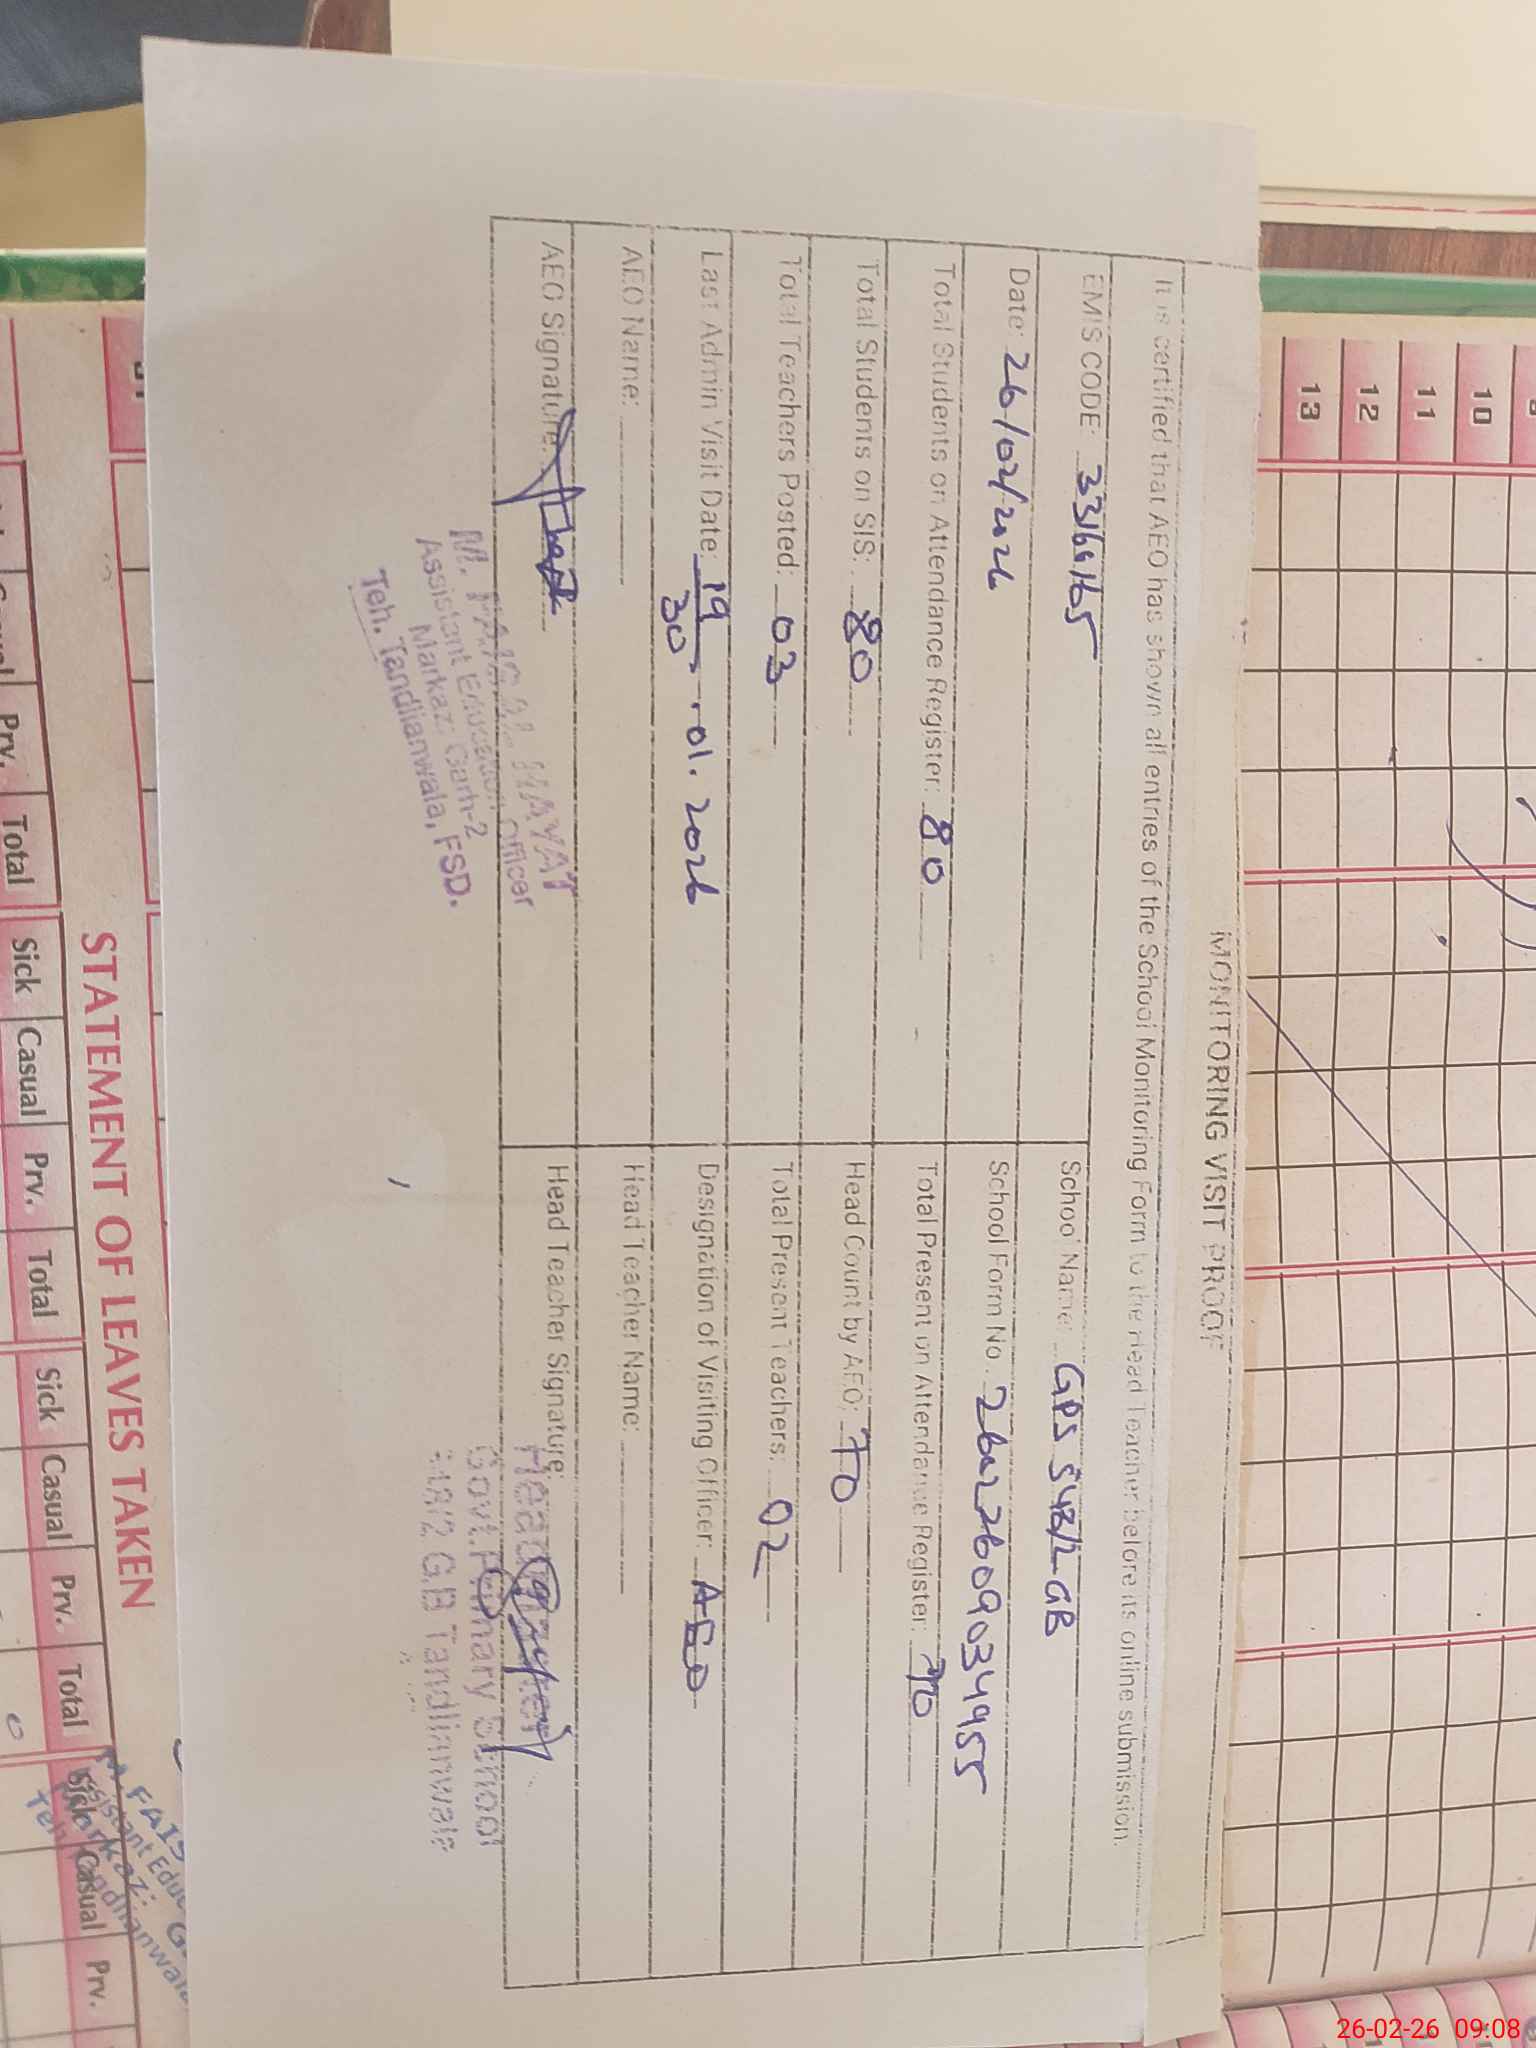 MONITORING VISIT PROOF
It is certified that AEO has shown all entries of the School Monitoring Form to the Head Teacher before its online submission.
EMIS CODE: 33166165
School Name: GPS 548/2 GB
Date: 26/02/2026
School Form No. 26022609034955
Total Students on Attendance Register: 80
Total Present on Attendance Register: 70
Total Students on SIS: 80
Head Count by AEO: 70
Total Teachers Posted: 03
Total Present Teachers: 02
Last Admin Visit Date: 19/30 .01.2026
Designation of Visiting Officer: AEO
AEO Name:
Head Teacher Name:
AEO Signature:
Head Teacher Signature:
M. FAISAL HAYAT
Assistant Education Officer
Markaz: Garh-2
Teh. Tandlianwala, FSD.
Govt. Primary School
G.B Tandlianwala
10
11
12
13
STATEMENT OF LEAVES TAKEN
Prv. Total Sick Casual Prv. Total Sick Casual Prv. Total Sick Casual Prv.
26-02-26 09:08